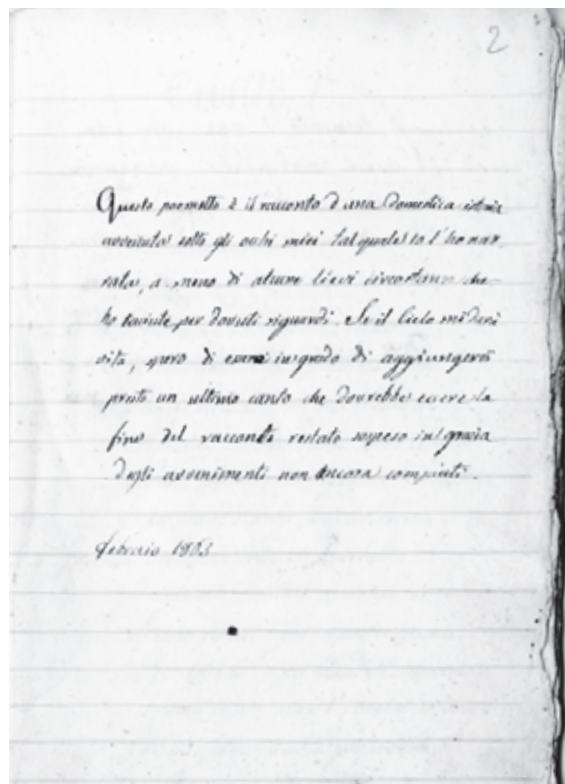 2
Questo poemetto è il racconto d'una domestica istoria
avvenuta sotto gli occhi miei tal quale io l'ho nar
rata, a meno di alcune lievi circostanze che
ho taciute per dovuti riguardi. Se il Cielo mi darà
vita, spero di essere in grado di aggiungervi
presto un ultimo canto che dovrebbe essere la
fine del racconto restato sospeso in grazia
degli avvenimenti non ancora compiuti.
Febraio 1863